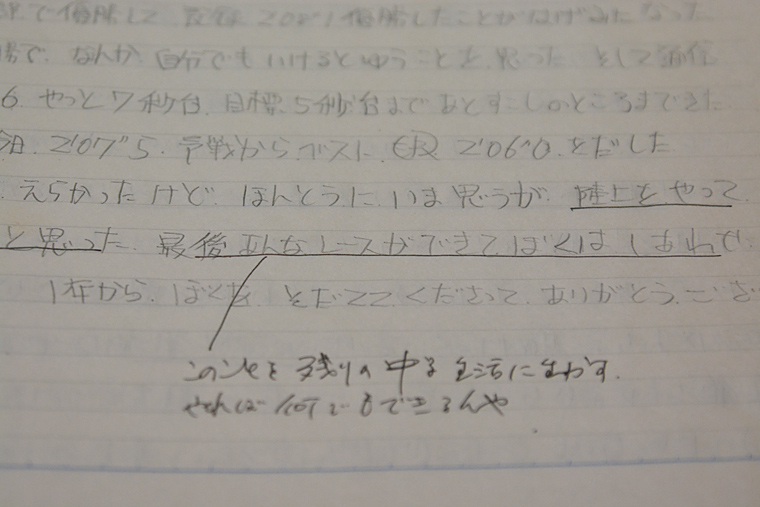 で優勝して 2'08"1 優勝したことがはげみになった
場で、なんか 自分でもいけるとゆうことを思った そして
6. やっと7秒台、目標、5秒台まであとすこしのところまできた
今日、2'07"5、予戦からベスト、決 2'06"0、をだした
えらかったけど、ほんとうにいま思うが、陸上をやって
と思った、最後あんなレースができてぼくはしあわせで
1年から、ぼくを そだててくださって、ありがとうござ
このことを残りの中3生活に生かす。
やれば何でもできるんや